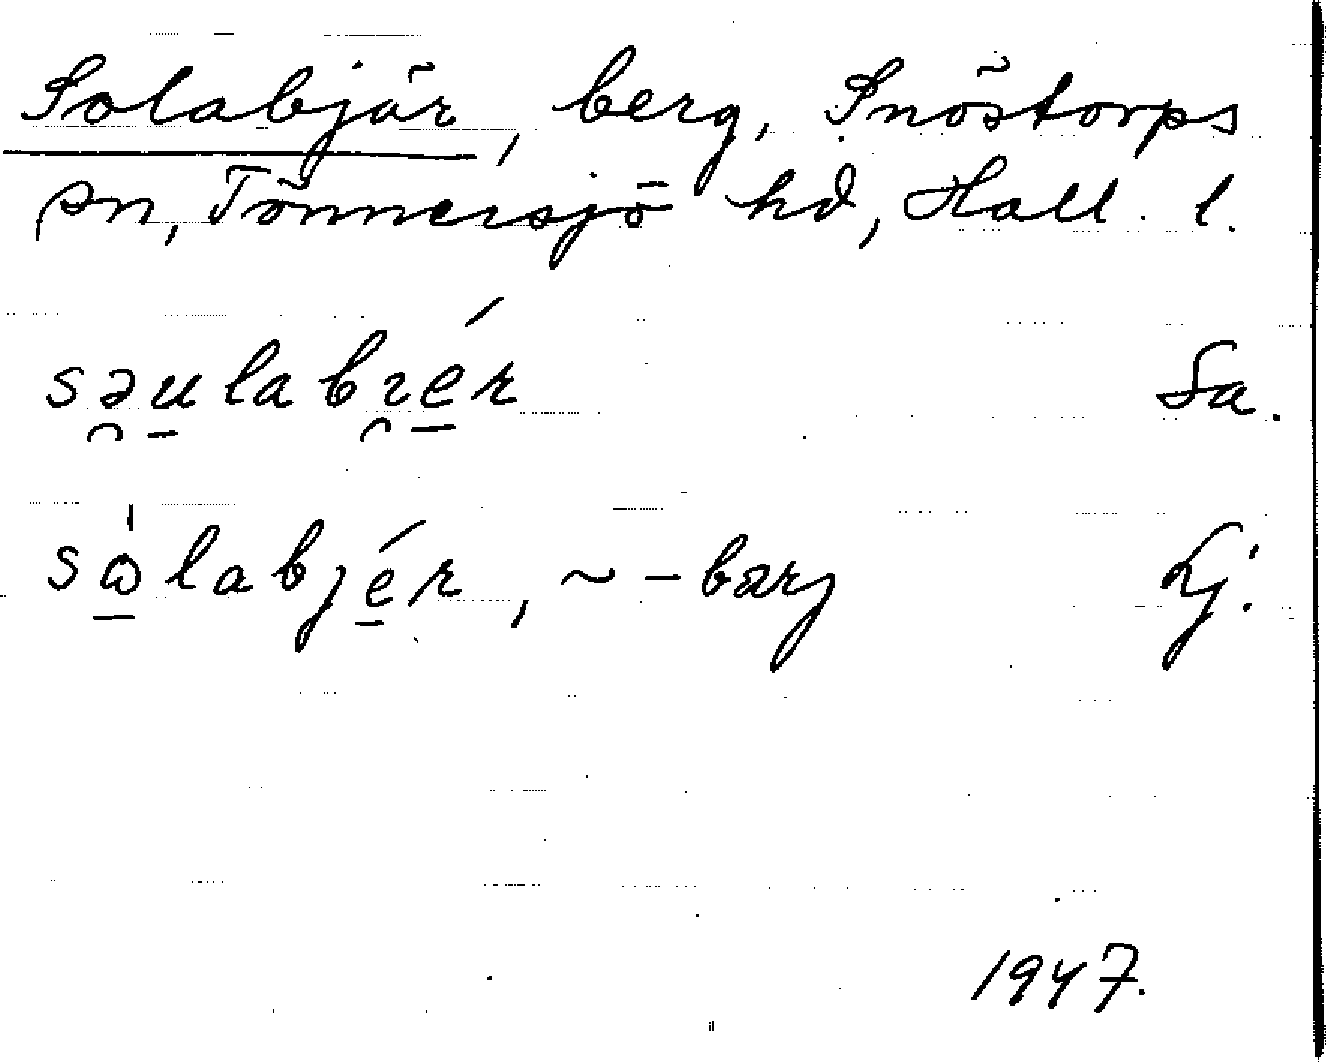 Solabjär, berg, Snöstorps
sn, Tönnersjö hd, Hall. l.
səulabɪér Sa.
sωlabjér, ~ – bærj Lj.
1947.